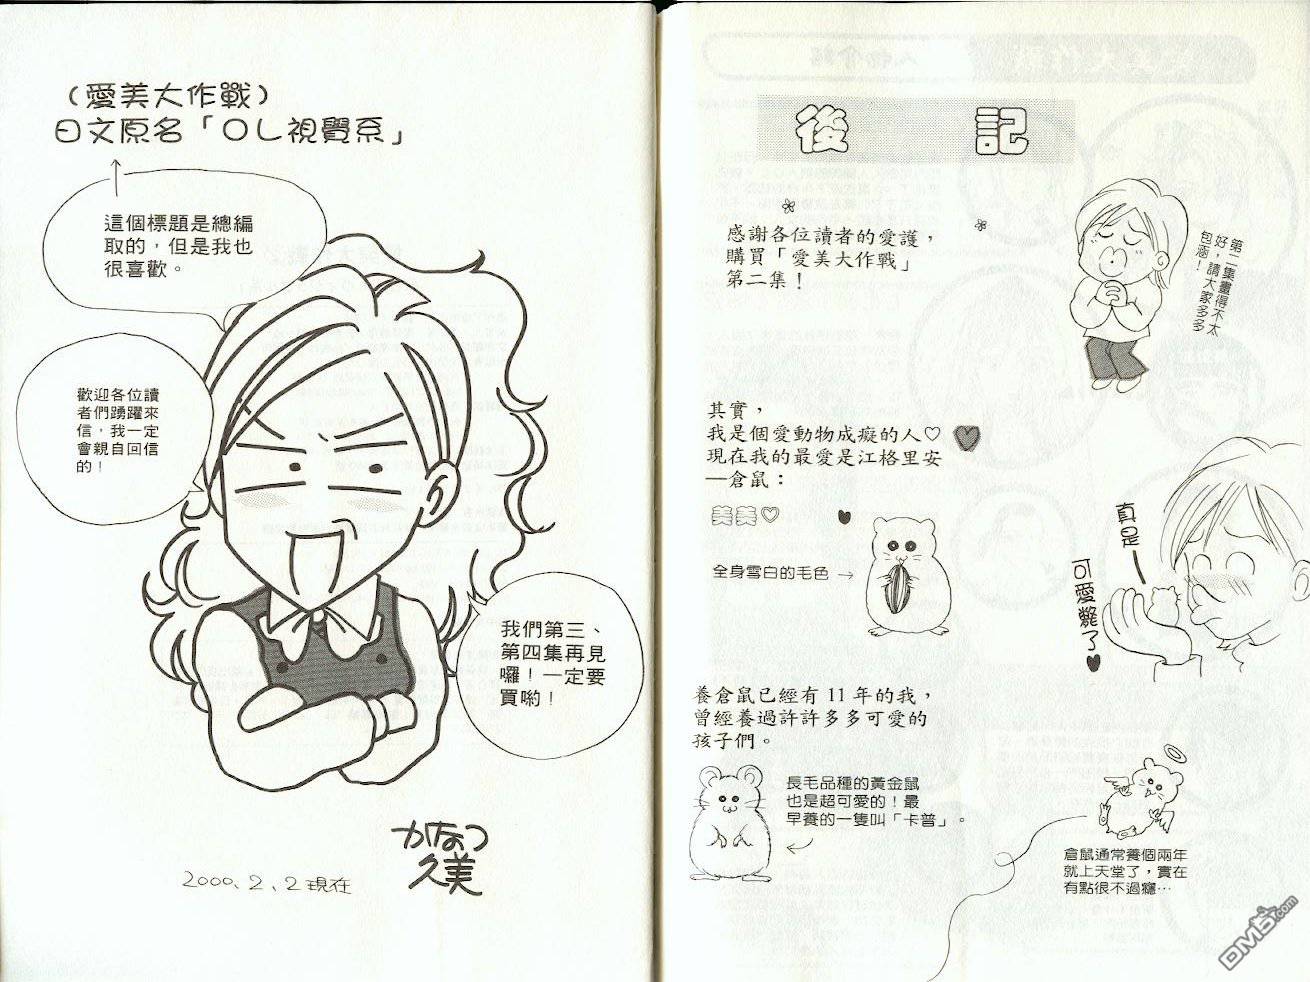 後記
感謝各位讀者的愛護，
購買「愛美大作戰」
第二集！
第二集畫得不太
好，請大家多多
包涵！
其實，
我是個愛動物成癡的人♡
現在我的最愛是江格里安
—倉鼠：
美美♡
全身雪白的毛色→
真是—
可愛斃了♥
養倉鼠已經有11年的我，
曾經養過許許多多可愛的
孩子們。
長毛品種的黃金鼠
也是超可愛的！最
早養的一隻叫「卡普」。
倉鼠通常養個兩年
就上天堂了，實在
有點很不過癮…
（愛美大作戰）
日文原名「OL視覺系」
這個標題是總編
取的，但是我也
很喜歡。
歡迎各位讀
者們踴躍來
信，我一定
會親自回信
的！
我們第三、
第四集再見
囉！一定要
買喲！
かなつ
久美
2000、2、2現在
DM5.com